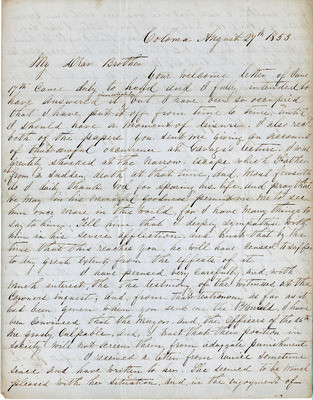 Coloma August 27th 1853
My Dear Brother
Your welcome letter of June
17th came duly to hand and I fully intended to
have answered it immediately but I have been so occupied
that I have put it off from time to time, until
I should have a moment of leisure. I have read
both of the papers you sent me giving an account
of that awful occurrence at Gavazzi's lecture. I was
greatly shocked at the narrow escape which Father
from a sudden death at that time, and most fervently
do I daily thank God for sparing his life and pray that
he may in his goodness permit me to see
him once more in this world for I have many things to
say to him. Tell him that I deeply sympathise with
him in his severe affliction, and trust that by the
time that this reaches you, he will have ceased to suffer
to any great extent from the effects of it.
I have perused very carefully, and with
much interest, the testimony of the witnesses at the
Coroners Inquest, and, from that testimony, as far as it
had been given when you sent me the Herald, I have
been convinced that the Mayor, and the Officers of the 26th
are greatly culpable and, I trust that their position in
society will not screen them, from adequate punishment
I received a letter from sometime
since and have written to her. She seemed to be much
pleased with her situation, and in the enjoyment of